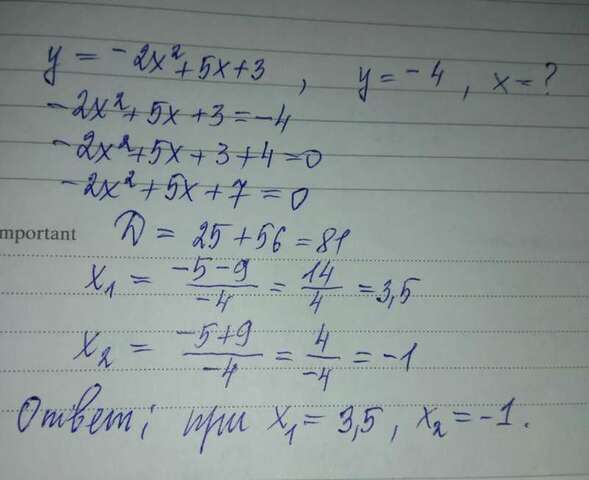 y = -2x²+5x+3, y=-4, x=?
-2x²+5x+3=-4
-2x²+5x+3+4=0
-2x²+5x+7=0
mportant D = 25+56=81
x₁ = (-5-9)/(-4) = 14/4 = 3,5
x₂ = (-5+9)/(-4) = 4/(-4) = -1
Ответ; при x₁=3,5, x₂=-1.